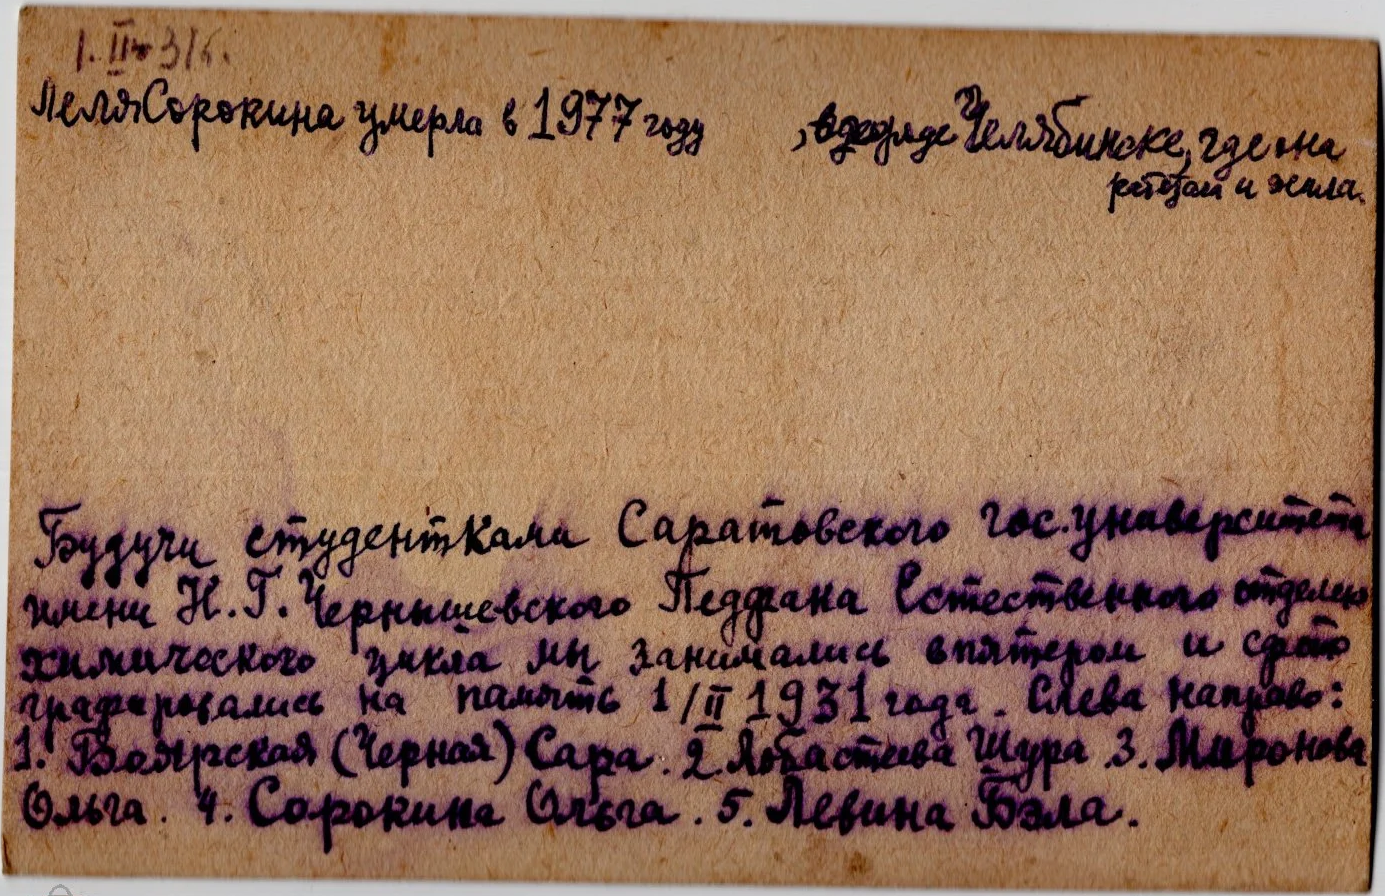 1. II - 31г.
Леля Сорокина умерла в 1977 году , в городе Челябинске, где она
работала и жила.
Будучи студентками Саратовского гос. университета
имени Н. Г. Чернышевского Педфака Естественного отделен
химического цикла мы занимались впятером и сфото
графировались на память 1/II 1931 года. Слева направо:
1. Боярская (Черная) Сара. 2 Лобастева Шура. 3. Миронова
Ольга. 4. Сорокина Ольга. 5. Левина Бэла.